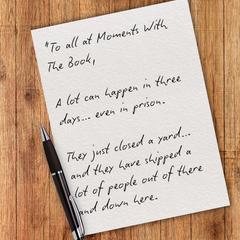 "To all at Moments With
The Book,
A lot can happen in three
days... even in prison.
They just closed a yard...
and they have shipped a
lot of people out of there
and down here.